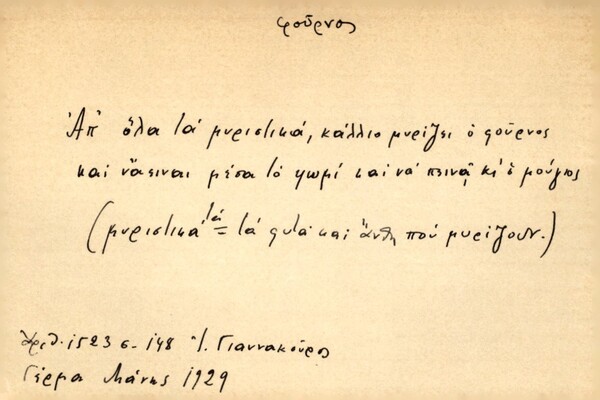 φοῦρνος
Ἀπ' ὅλα τά μυριστικά, κάλλιο μυρίζει ὁ φοῦρνος
καί νἄειναι μέσα τό ψωμί καί νά πεινᾷ κι' ὁ μούργος
(μυριστικά τά = τά φυτά και ἄνθη πού μυρίζουν.)
Ἀριθ. 1523 σ. 148 Ἰ. Γιαννακοῦρος
Γέρμα Μάνης 1929